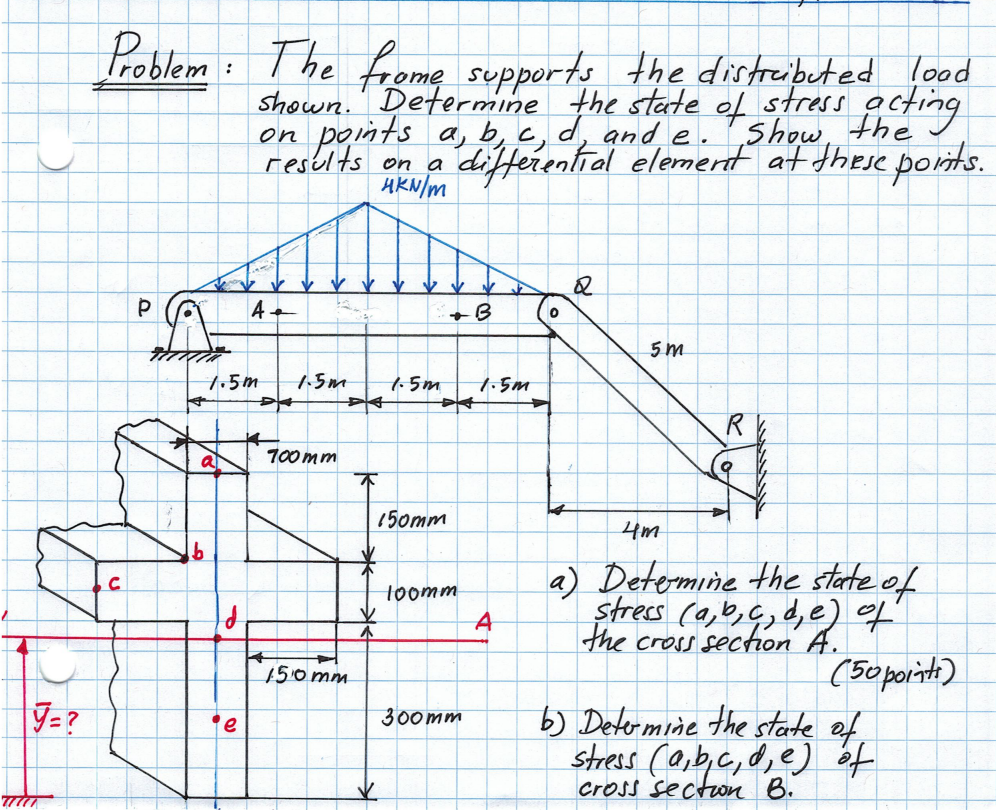 Problem : The frame supports the distributed load
shown. Determine the state of stress acting
on points a, b, c, d, and e. Show the
results on a differential element at these points.
4KN/m
P
A
B
Q
5m
1.5m
1.5m
1.5m
1.5m
R
4m
700mm
a
150mm
b
c
100mm
d
A
150mm
ȳ=?
e
300mm
a) Determine the state of
stress (a,b,c,d,e) of
the cross section A.
(50points)
b) Determine the state of
stress (a,b,c,d,e) of
cross section B.